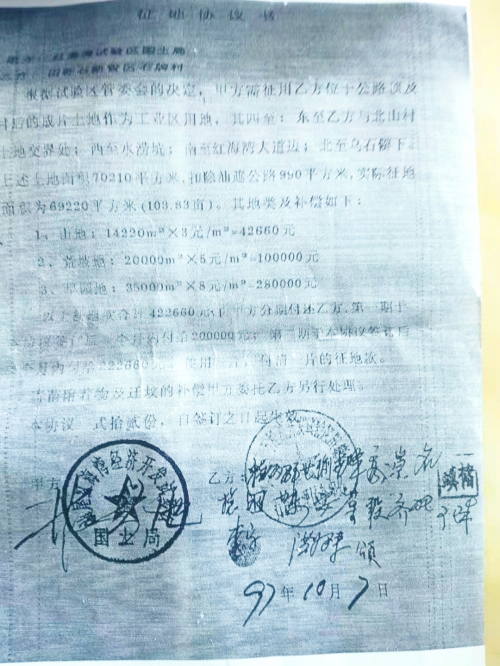 征地协议书
甲方：红海湾试验区国土局
乙方：田墘石新贺区石牌村
根据试验区管委会的决定，甲方需征用乙方位于公路边及
村后的成片土地作为工业区用地，其四至：东至乙方与北山村
土地交界处；西至水涝坑；南至红海湾大道边；北至乌石僻下。
上述土地面积70210平方米，扣除油遮公路990平方米，实际征地
面积为69220平方米(103.83亩)。其地类及补偿如下：
1、山地：14220m²×3元/m²=42660元
2、荒坡地：20000m²×5元/m²=100000元
3、旱园地：35000m²×8元/m²=280000元
以上征地费合计422660元，由甲方分期付还乙方，第一期于
本协议签订后一个月内付给200000元；第二期于本协议签订后
个月内付给222660元。使用一片，付清一片的征地款。
青苗附着物及迁坟的补偿甲方委托乙方另行处理。
本协议一式拾贰份，自签订之日起生效。
甲方
乙方
经济开发试验
国土局
97年10月7日